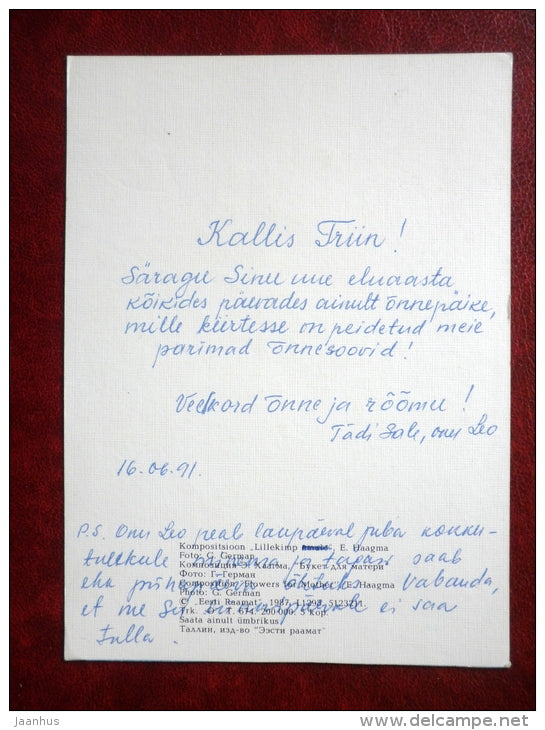 Kallis Triin!
Säragu Sinu uue eluaasta
kõikides päevades ainult õnnepäike,
mille kiirtesse on peidetud meie
parimad õnnesoovid!
Veelkord õnne ja rõõmu!
Tädi Sale, onu Leo
16.06.91.
P.S. Onu Leo peab laupäeval juba kokku-
tulekule ja tagasi saab
Kompositsioon „Lillekimp E. Haagma
Foto: G. German
Композиция Э. Хаагма, "Букет для матери
Фото: Г. Герман
eha Vabanda,
Composition Flowers for Mother, E. Haagma
Photo: G. German
et me ei saa
© „Eesti Raamat" 1987
Trk. T. 674. 200 000. 5 kop.
tulla.
Saata ainult ümbrikus
Таллин, изд-во "Ээсти раамат"
jaanhus
www.delcampe.net